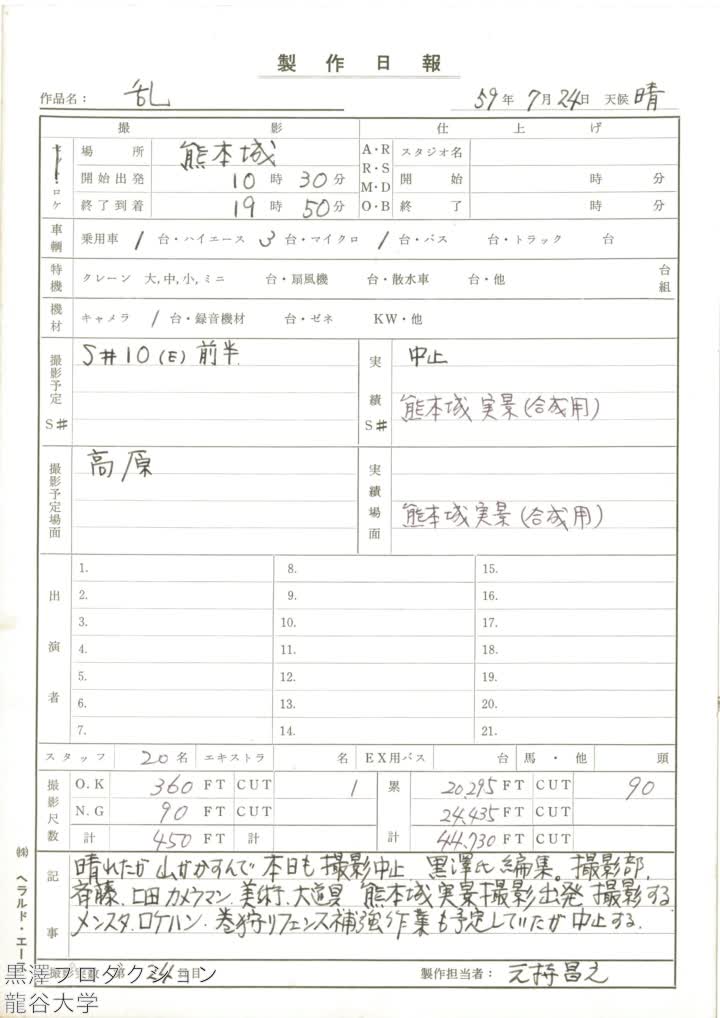 製作日報
作品名： 乱 59年 7月 24日 天候 晴
撮影 仕上げ
ロケ 場所 熊本城 A・R R・S M・D O・B スタジオ名
開始出発 10時 30分 開始 時 分
終了到着 19時 50分 終了 時 分
車輌 乗用車 1 台・ハイエース 3 台・マイクロ 1 台・バス 台・トラック 台
特機 クレーン 大,中,小,ミニ 台・扇風機 台・散水車 台・他 台組
機材 キャメラ 1 台・録音機材 台・ゼネ KW・他
撮影予定 S# S#10(E)前半 実績 S# 中止
熊本城実景(合成用)
撮影予定場面 高原 実績場面
熊本城実景(合成用)
出演者
1. 8. 15.
2. 9. 16.
3. 10. 17.
4. 11. 18.
5. 12. 19.
6. 13. 20.
7. 14. 21.
スタッフ 20名 エキストラ 名 EX用バス 台 馬・他 頭
撮影尺数 O.K 360 FT CUT 1 累計 20,295 FT CUT 90
N.G 90 FT CUT 24,435 FT CUT
計 450 FT 計 44,730 FT CUT
記事 晴れたが山がかすんで本日も撮影中止 黒澤氏編集。撮影部、
斉藤、上田カメラマン、美術、大道具 熊本城実景撮影出発 撮影する
メンスタ、ロケハン、巻狩りフェンス補強作業も予定していたが中止する。
撮影実数 第 24 日目 製作担当者： 元持昌之
㈱ ヘラルド・エース
黒澤プロダクション
龍谷大学